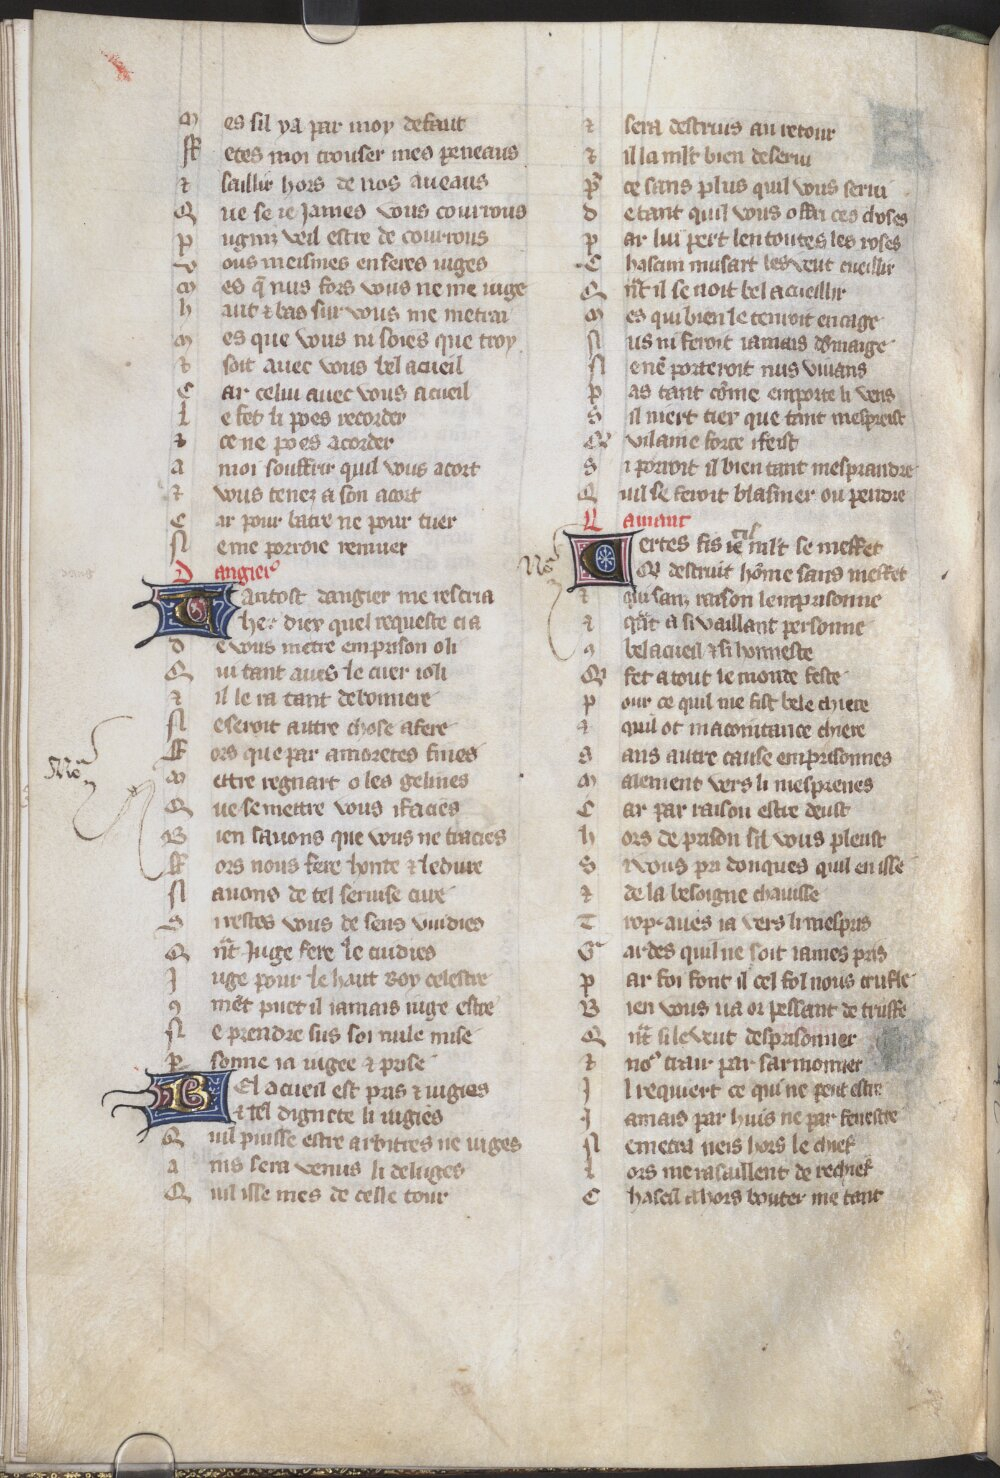 M es sil ya par moy defaut
ff etes moi trouser mes peneaus
& saillir hors de nos aueaus
Q ue se ie James vous courrous
p ugniz veil estre de courrous
v ous meismes en feres iuges
m es q̃ nus fors vous ne me iuge
h aut & bas sur vous me metrai
m es que vous ni soies que troy
& soit auec vous bel acueil
C ar celui auec vous acueil
l e fet li poes recorder
& ce ne poes acorder
a moi souffrir quil vous acort
& vous tenez a son acort
C ar pour batre ne pour tuer
N e me porroie remuer
D angier
T antost dangier me rescria
her diex quel requeste ci a
d e vous metre em prison o li
Q ui tant aues le cuer ioli
& il le ra tant debonnere
N e seroit autre chose a fere
ff ors que par amoretes fines
M ettre regnart o les gelines
Q ue se mettre vous i facies
B ien sauons que vous ne tracies
ff ors nous fere honte & ledure
N auons de tel seruise cure
S i restes vous de sens vuidies
Q ñt Juge fere le cuidies
J uge pour le haut Roy celestre
9 mẽt puet il iamais iuge estre
N e prendre sus soi nule mise
P sonne ia iugee & prise
B El acueil est pris & iugies
& tel dignete li iugies
Q uil puisse estre arbitres ne iuges
a ins sera venus li deluges
Q uil isse mes de celle tour
& sera destruis au retour
& il la ml't bien deserui
p ce sans plus quil vous serui
d e tant quil vous offri ces choses
p ar lui pert len toutes les roses
C hascun musart les veut cueillir
Q ñt il se uoit bel acueillir
M es qui bien le tenroit en cage
N us ni feroit iamais domaige
N e nẽ porteroit nus viuans
P as tant cõme emporte li vens
S il niert tier que tant mespreist
Q vilaine force i feist
S i porroit il bien tant mesprandre
Q uil se feroit blasmer ou pendre
L amant
C ertes fis ie cil ml't se meffet
Q destruit hõme sans meffet
& qui sanz raison lemprisonne
& qñt a si vaillant personne
9 bel acueil & si honneste
Q fet a tout le monde feste
p our ce quil me fist bele chiere
& quil ot ma cointance chiere
S ans autre cause emprisonnes
M alement vers li mesprenes
C ar par raison estre deust
h ors de prison sil vous pleust
S i vous pri donques quil en isse
& de la besoigne cheuisse
T rop aues ia vers li mespris
G ardes quil ne soit iames pris
p ar foi font il cel fol nous trufle
B ien vous ua or pessant de truffe
Q ñt si le veut desprisonner
& nos trair par sarmonner
J l requiert ce qui ne peut estre
J amais par huis ne par fenestre
N emetra neis hors le chief
l ors me rasaillent de rechief
C hascũ a hors bouter me tent